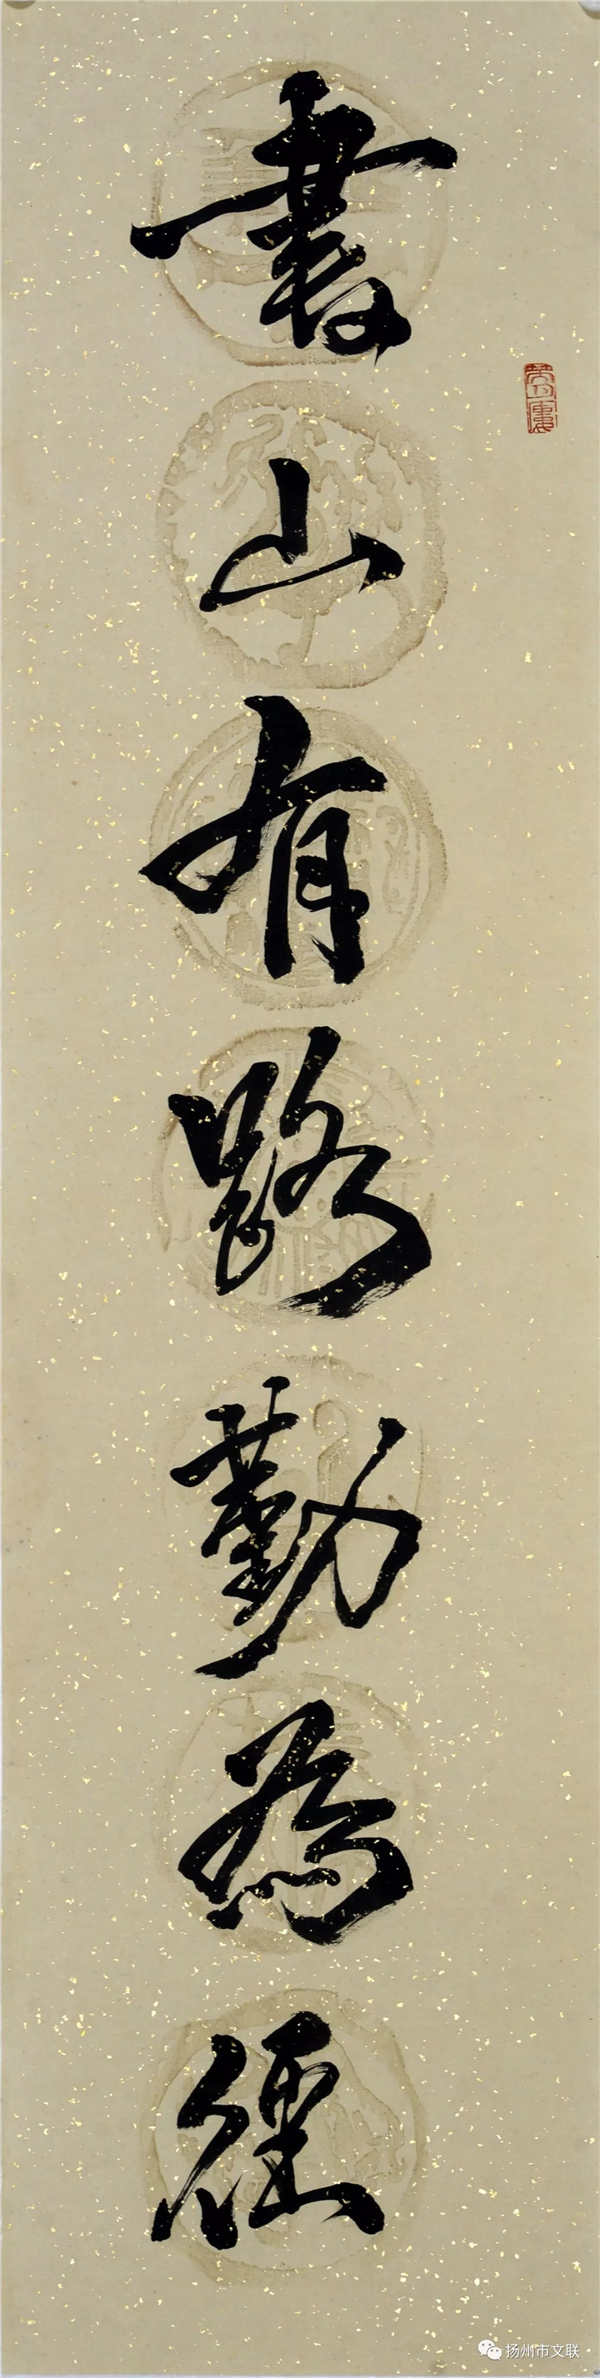 書山有路勤為徑
扬州市文联